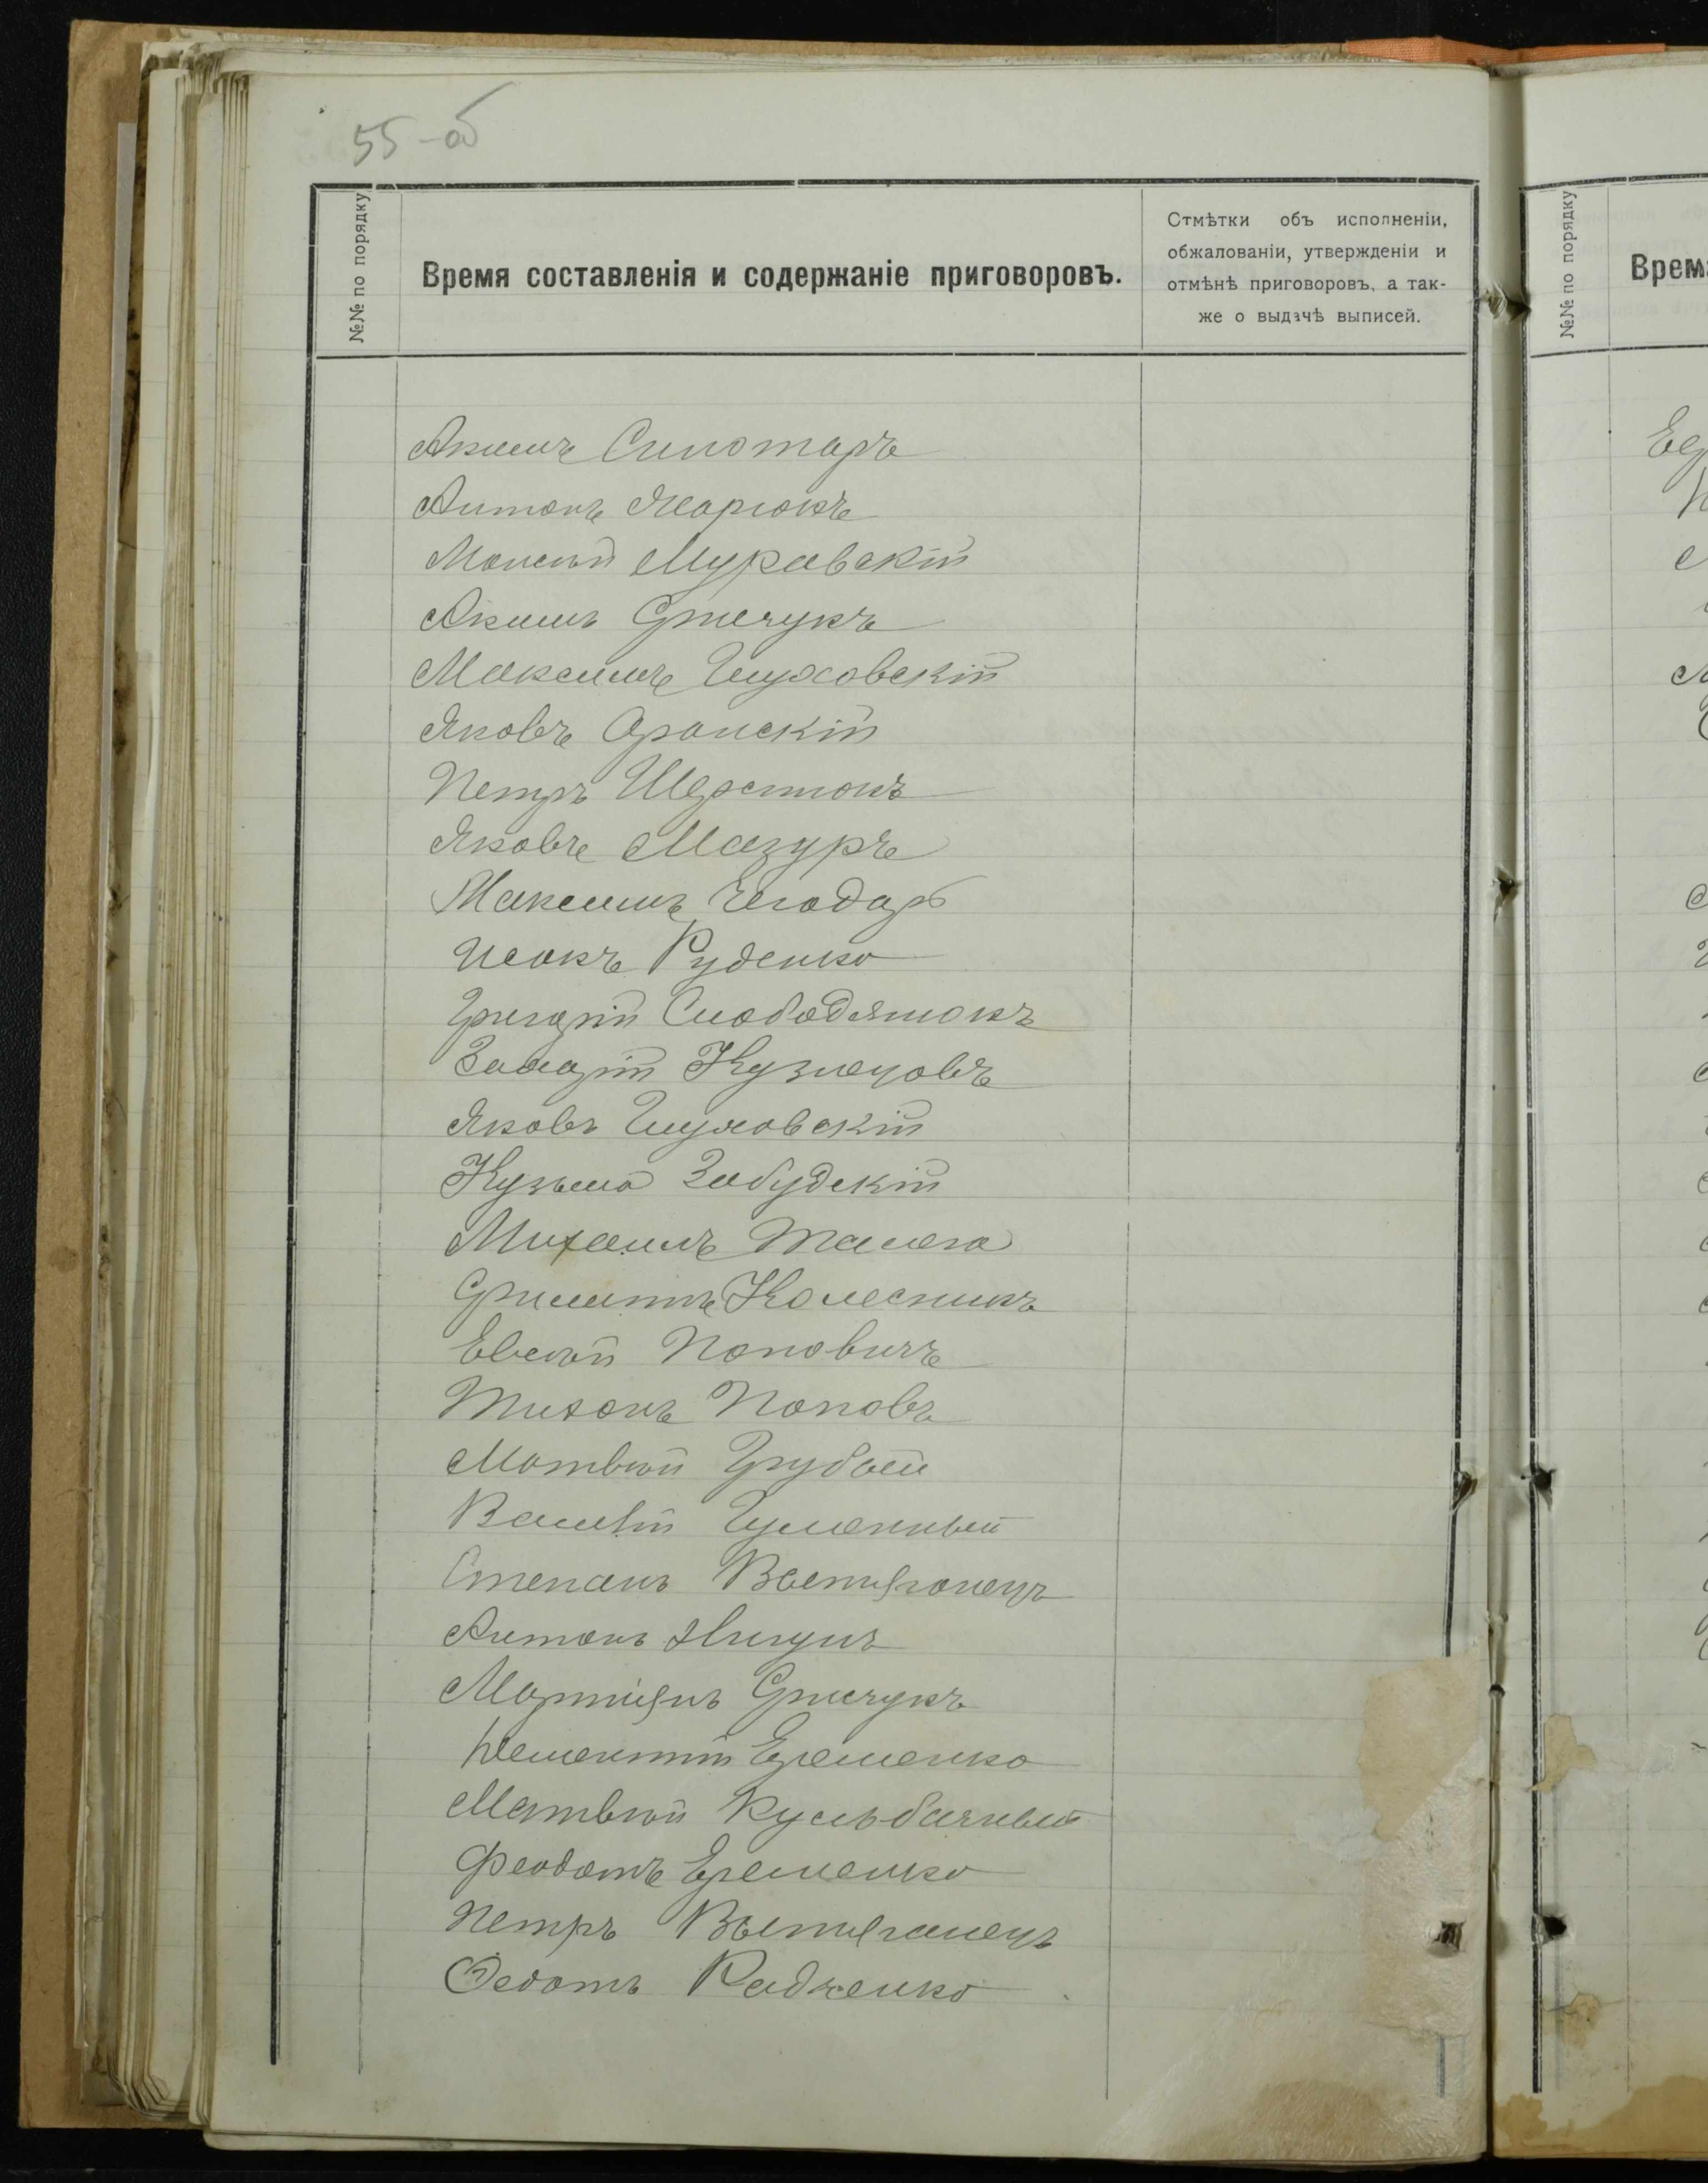 55-об
№№ по порядку
Время составленія и содержаніе приговоровъ.
Отмѣтки объ исполненіи,
обжалованіи, утвержденіи и
отмѣнѣ приговоровъ, а так-
же о выдачѣ выписей.
№№ по порядку
Акимъ
Антонъ
Моисей Муравскій
Акимъ Гричукъ
Максимъ Глуховскій
Яковъ
Петръ Шерстюкъ
Яковъ Мазуръ
Максимъ Чегодарь
Исакъ Руденко
Григорій Слободянюкъ
Захарій Кузнецовъ
Яковъ Глуховскій
Кузьма Забудскій
Михаилъ
Филиппъ Колесникъ
Евсей Поповичъ
Тихонъ Поповъ
Матвей Грубый
Василій Гуменный
Степанъ Вытяганецъ
Антонъ
Мартіянъ Гричукъ
Дементій Еременко
Матвей Кульбачный
Феодотъ Еременко
Петръ Вытяганецъ
Ѳедотъ Радченко